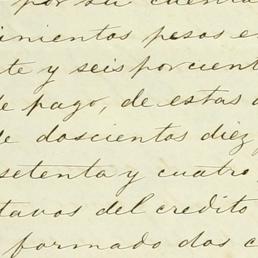 por su cuenta
inientos pesos e
te y seis porcient
de pago, de estas
de doscientos diez
setenta y cuatro
tavos del credito
formado dos c